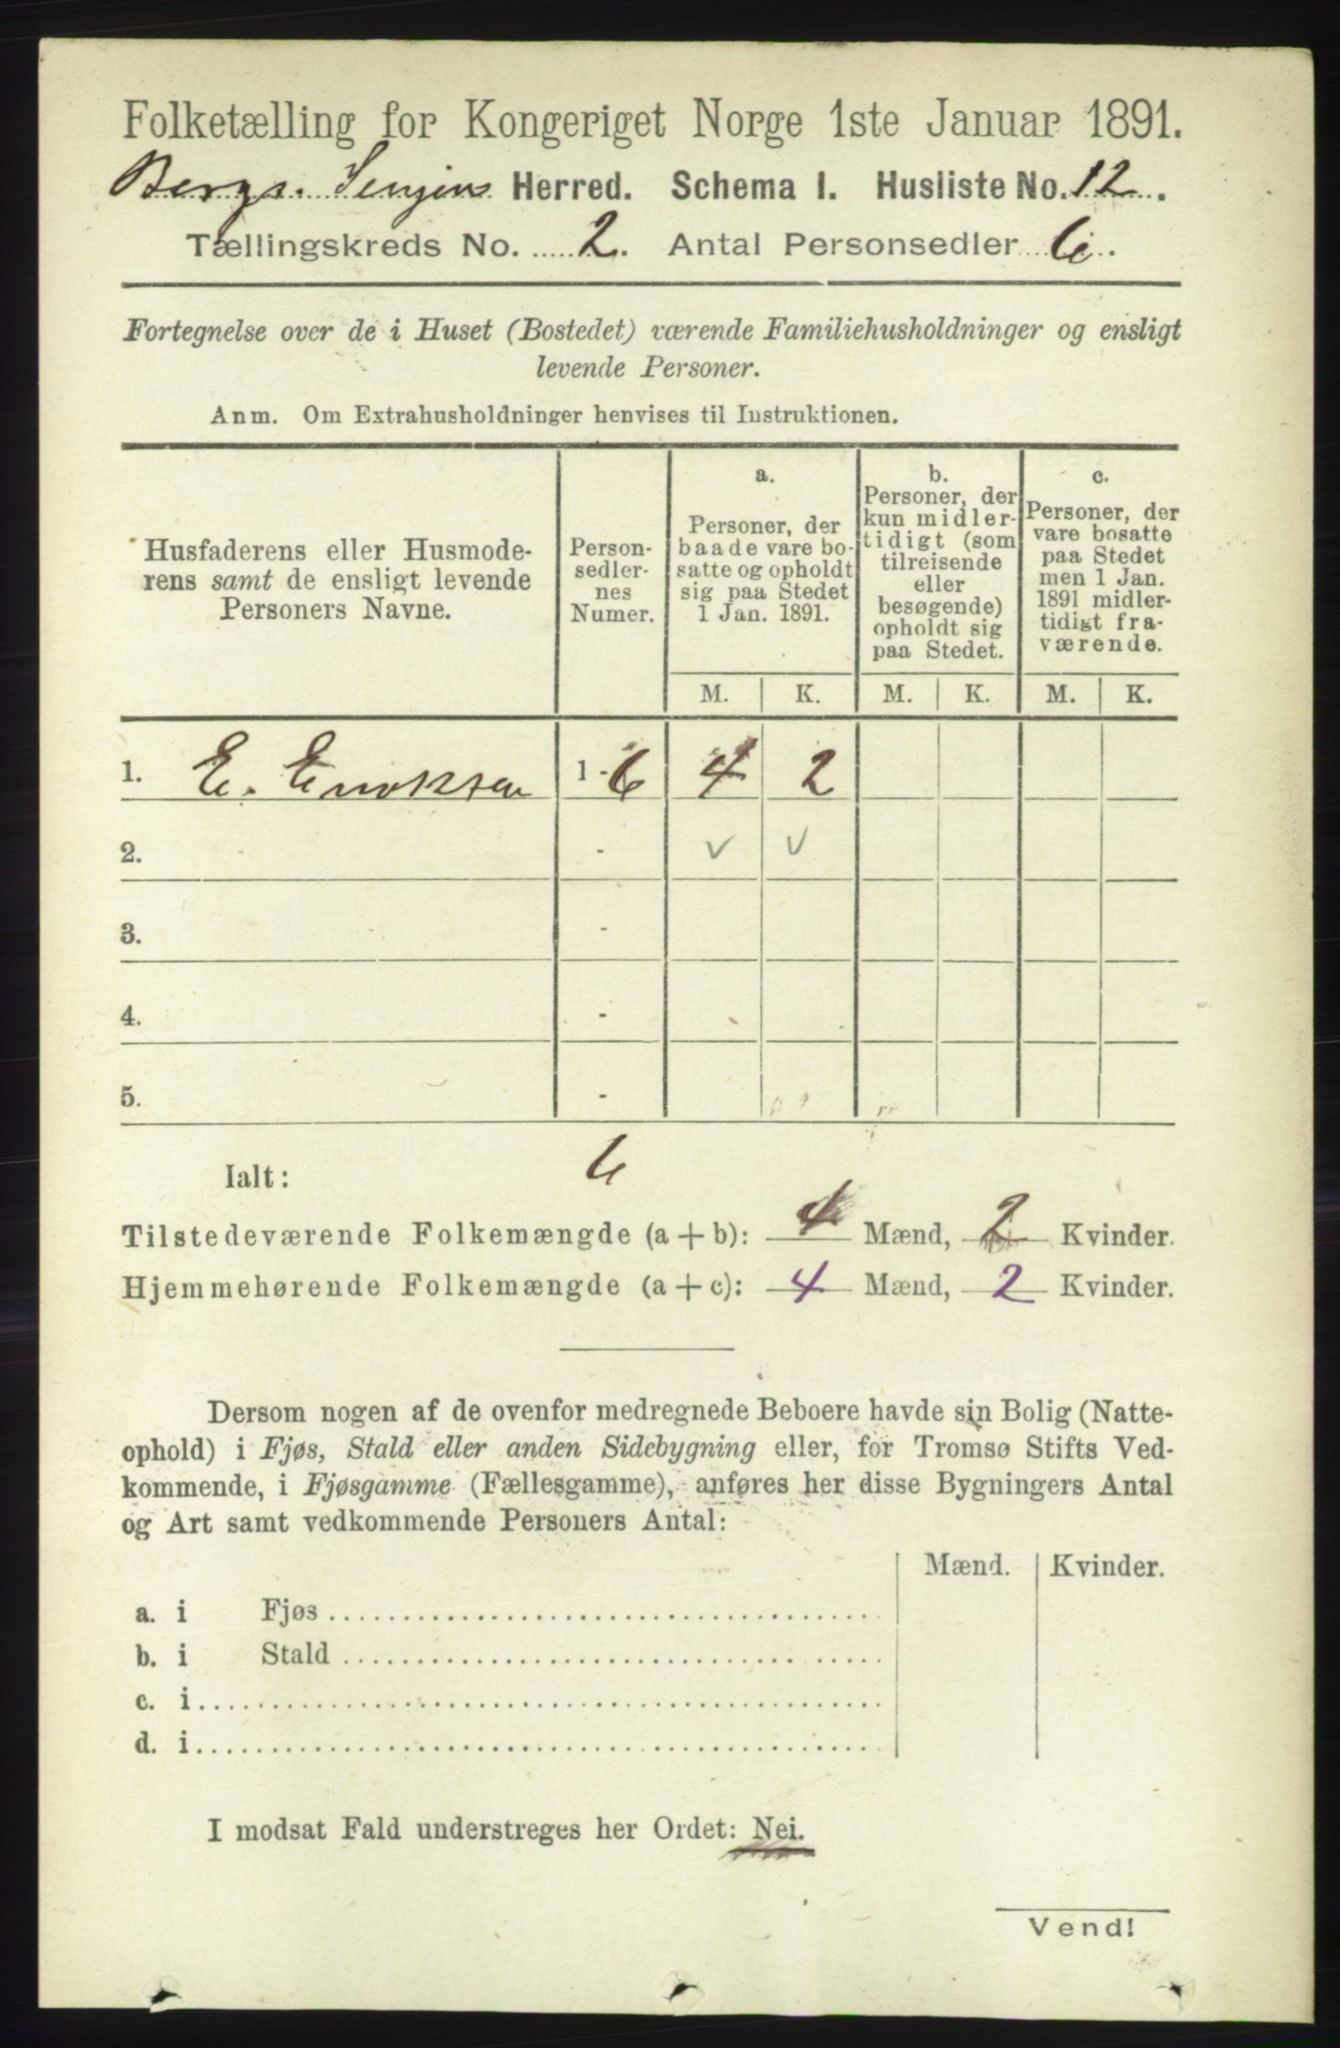 Folketælling for Kongeriget Norge 1ste Januar 1891.
Bergs. Senjens Herred. Schema I. Husliste No. 12.
Tællingskreds No. 2. Antal Personsedler 6.
Fortegnelse over de i Huset (Bostedet) værende Familiehusholdninger og ensligt
levende Personer.
Anm. Om Extrahusholdninger henvises til Instruktionen.
Husfaderens eller Husmode-
rens samt de ensligt levende
Personers Navne.
Person-
sedler-
nes
Numer.
a.
Personer, der
baade vare bo-
satte og opholdt
sig paa Stedet
1 Jan. 1891.
b.
Personer, der
kun midler-
tidigt (som
tilreisende
eller
besøgende)
opholdt sig
paa Stedet.
c.
Personer, der
vare bosatte
paa Stedet
men 1 Jan.
1891 midler-
tidigt fra-
værende.
M. K. M. K. M. K.
1. E. Enoksen 1 - 6 4 2
2. - v v
3. -
4. -
5. -
Ialt: 6
Tilstedeværende Folkemængde (a + b): 4 Mænd, 2 Kvinder.
Hjemmehørende Folkemængde (a + c): 4 Mænd, 2 Kvinder.
Dersom nogen af de ovenfor medregnede Beboere havde sin Bolig (Natte-
ophold) i Fjøs, Stald eller anden Sidebygning eller, for Tromsø Stifts Ved-
kommende, i Fjøsgamme (Fællesgamme), anføres her disse Bygningers Antal
og Art samt vedkommende Personers Antal:
Mænd. Kvinder.
a. i Fjøs
b. i Stald
c. i
d. i
I modsat Fald understreges her Ordet: Nei.
Vend!